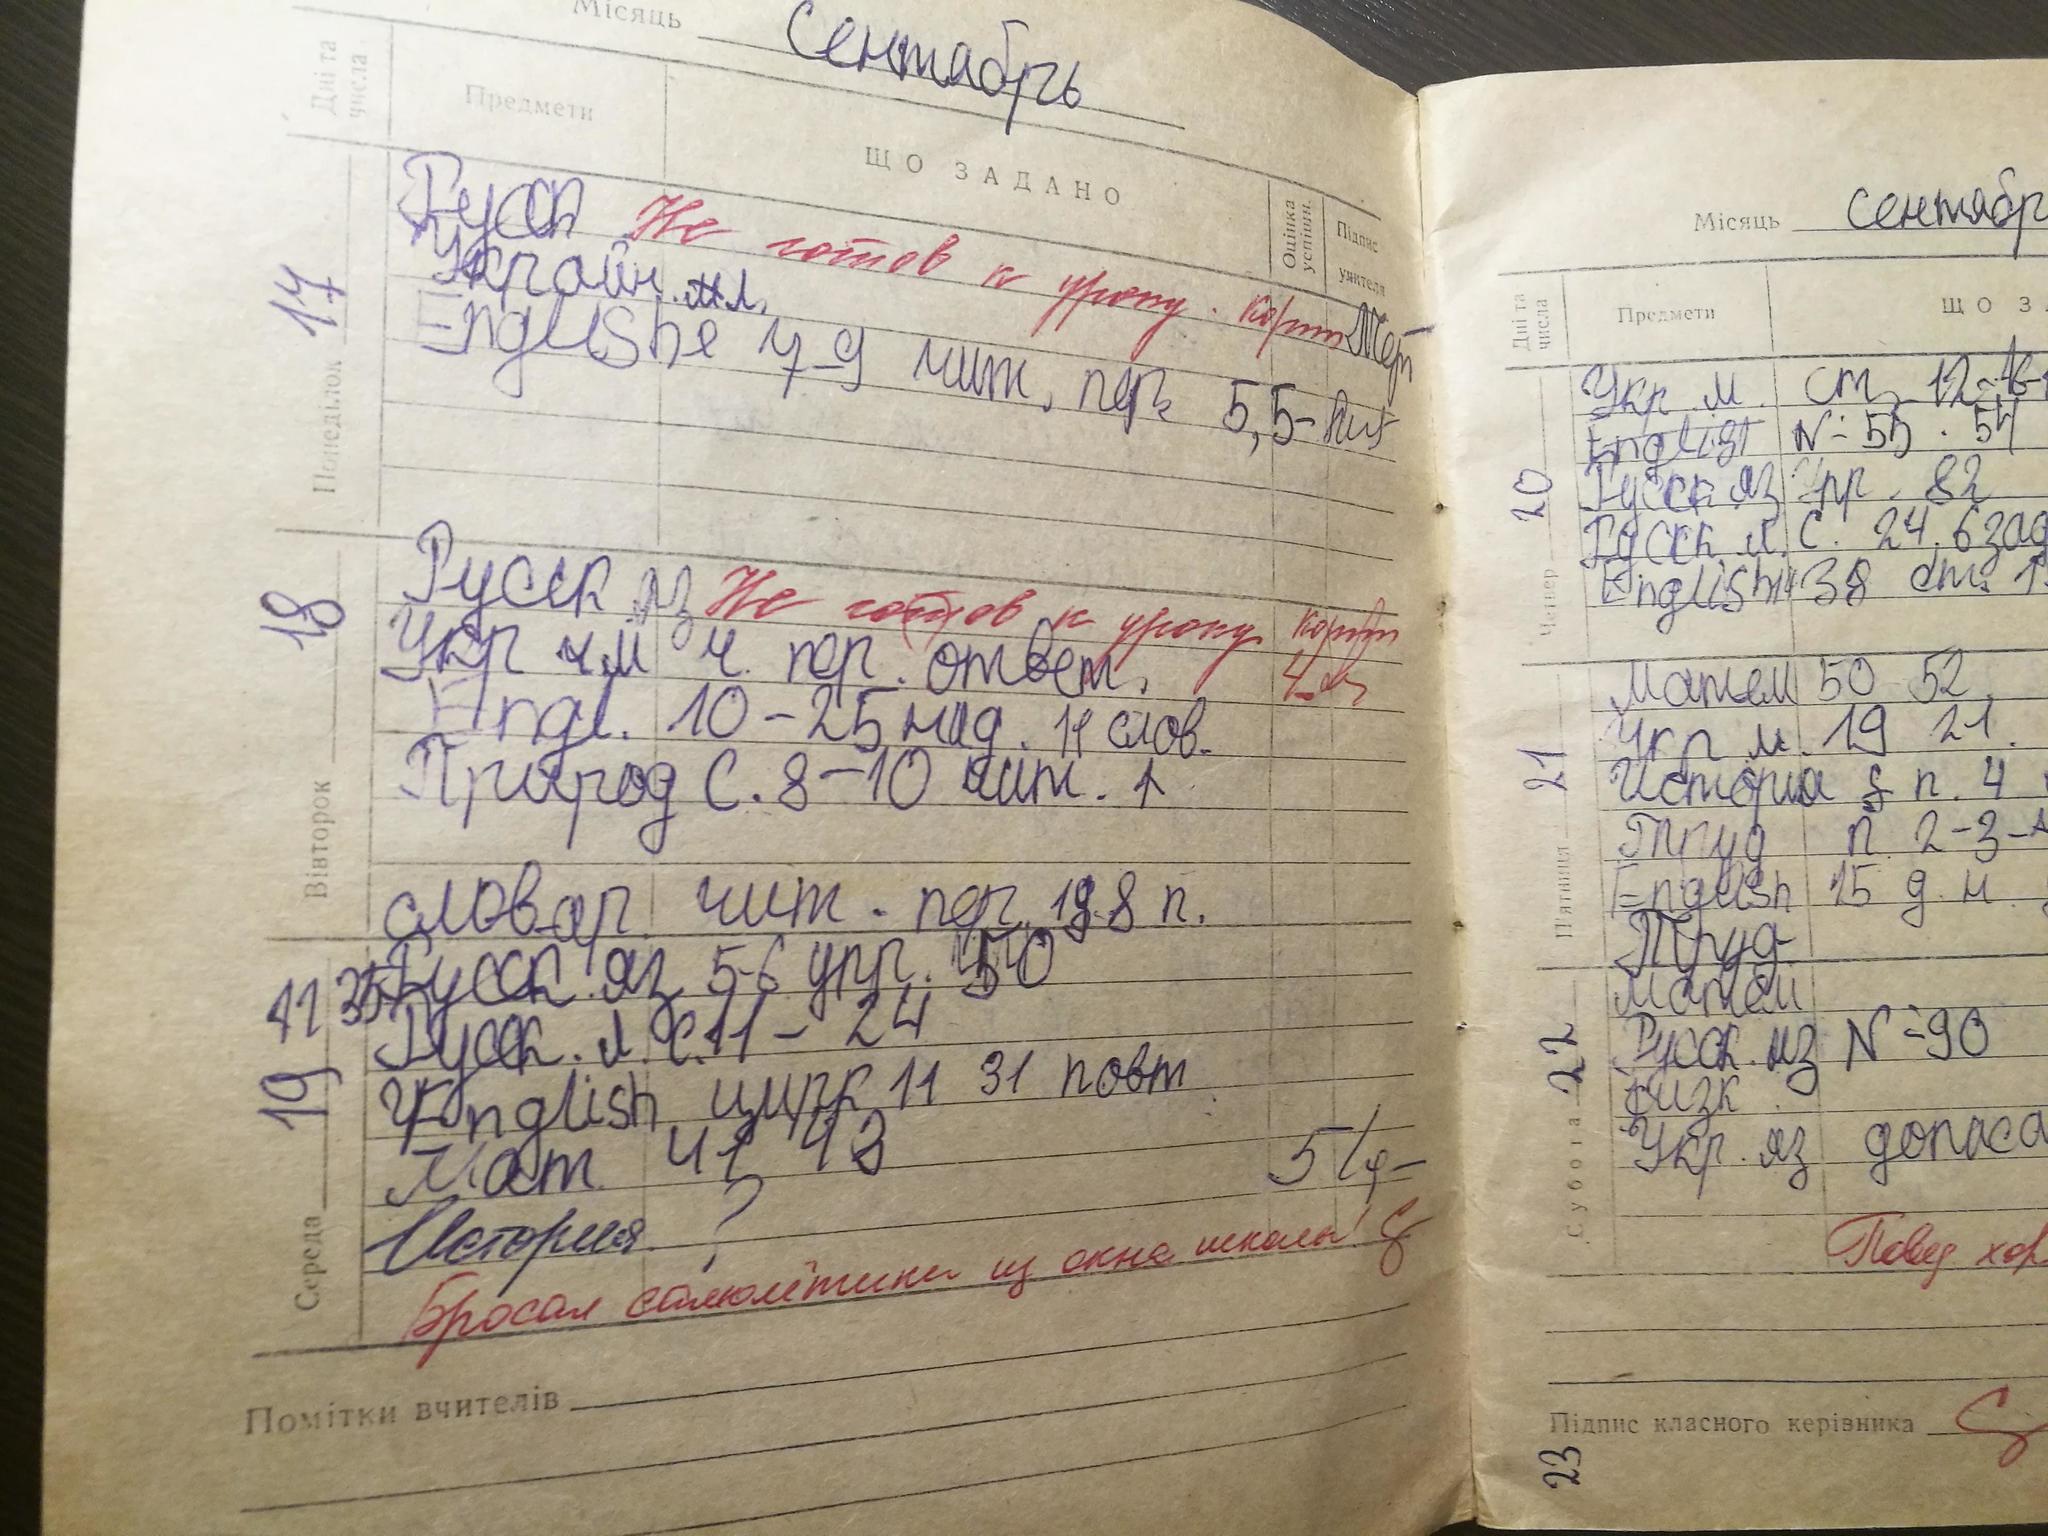 Місяць сентябрь
Дні та числа
Предмети
ЩО ЗАДАНО
Оцінка успішн.
Підпис учителя
Понеділок 17
Русск Не готов к уроку.
Украйн. м л.
Englishe 7-9 чит. пер. 5,5-
Вівторок 18
Русск яз Не готов к уроку
Укр ч. пер. ответ.
Engl. 10-25 над. 11 слов.
Природ С. 8-10 чит.
словар чит. пер. 8 п.
Середа 19
Русск. яз 5-6 упр. 50
Русск. л. С. 11-24
English цирк 11 31 повт
Мат 41 43
История ? 5
Бросал самолётики из окна школы!
Помітки вчителів
Місяць сентябр
Дні та числа
Предмети
ЩО З
Четвер 20
Укр. м. ст. 12-
English N=55. 54
Русск яз Упр. 82
Русск л. С. 24. 6 зад
English 38 ст.
П'ятниця 21
Матем 50 52.
Укр м. 19 21.
История § п. 4
Труд п 2-3-
English 15 д. н.
Труд
Субота 22
матем
Русск. яз N=90
Физк
Укр. яз допаса
Повед хор
Підпис класного керівника
23